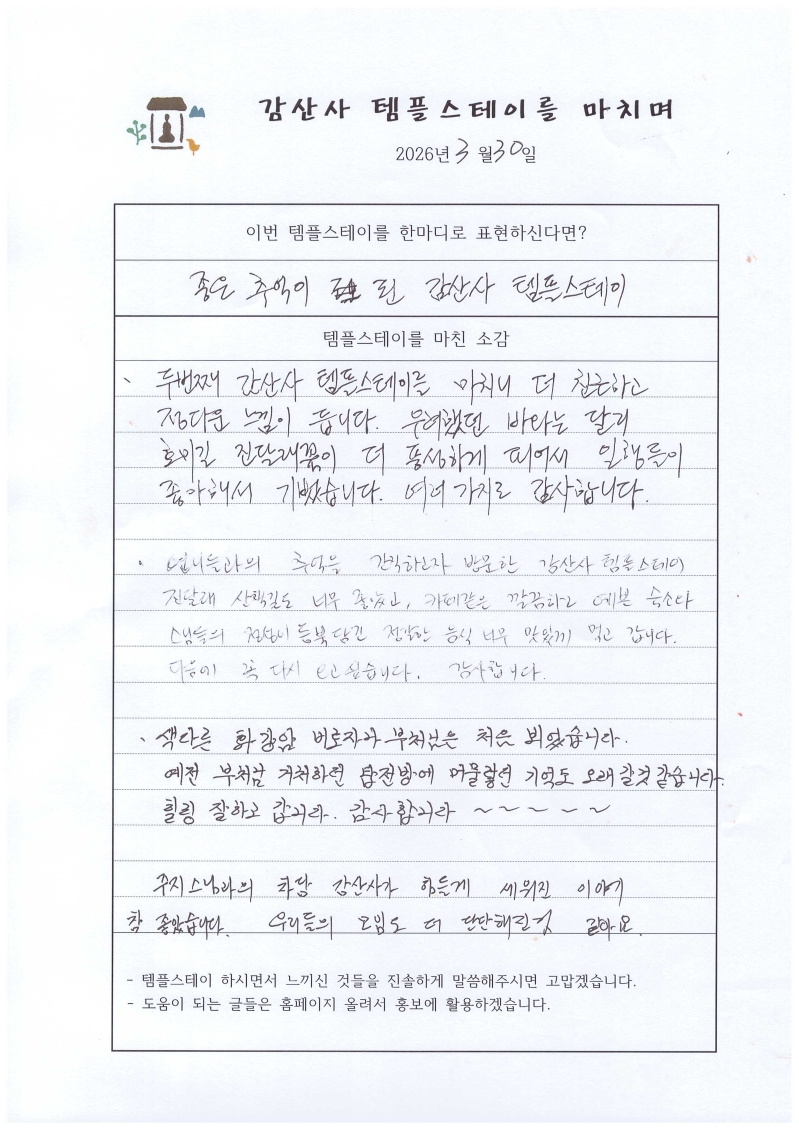 감산사 템플스테이를 마치며
2026년 3월 30일
이번 템플스테이를 한마디로 표현하신다면?
좋은 추억이 된 감산사 템플스테이
템플스테이를 마친 소감
、 두번째 감산사 템플스테이를 마치니 더 친근하고
정다운 느낌이 듭니다. 우려했던 바와는 달리
호위길 진달래꽃이 더 풍성하게 피어서 일행들이
좋아해서 기뻤습니다. 여러 가지로 감사합니다.
· 언니들과의 추억을 간직하고자 방문한 감산사 템플스테이
진달래 산책길도 너무 좋았고, 카페같은 깔끔하고 예쁜 숙소와
스님들의 정성이 듬북담긴 정갈한 음식 너무 맛있게 먹고 갑니다.
다음에 꼭 다시 오고싶습니다. 감사합니다.
、 색다른 화강암 비로자나 부처님은 처음 뵈었습니다.
예전 부처님 거처하던 방에 머물렀던 기억도 오래갈것 같습니다.
힐링 잘하고 갑니다. 감사합니다 ~ ~ ~ ~ ~
주지스님과의 차담 감산사가 힘들게 세워진 이야기
참 좋았습니다. 우리들의 모임도 더 단단해진것 같아요.
- 템플스테이 하시면서 느끼신 것들을 진솔하게 말씀해주시면 고맙겠습니다.
- 도움이 되는 글들은 홈페이지 올려서 홍보에 활용하겠습니다.